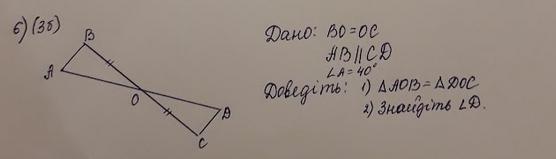 б) (3б)
B
A
O
D
C
Дано: BO = OC
AB || CD
∠A = 40°
Доведіть: 1) △AOB = △DOC
2) Знайдіть ∠D.